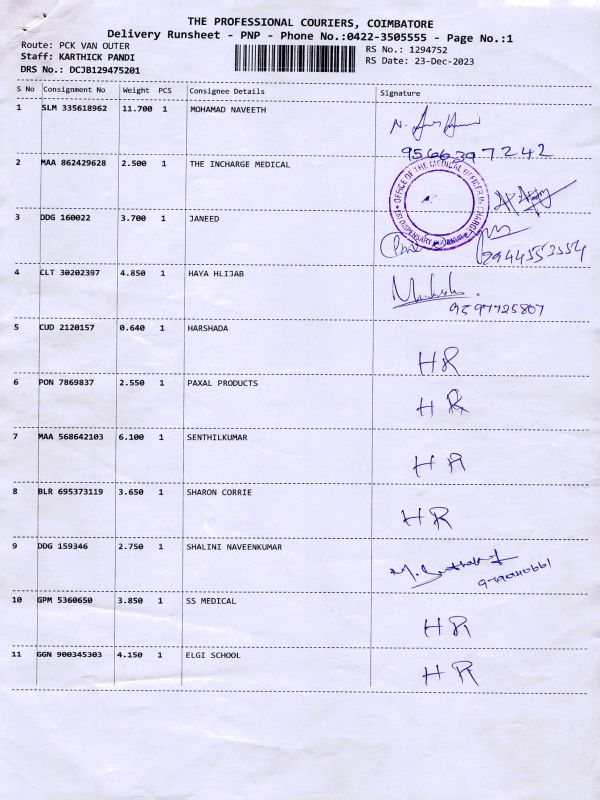 THE PROFESSIONAL COURIERS, COIMBATORE
Delivery Runsheet - PNP - Phone No.:0422-3505555 - Page No.:1
Route: PCK VAN OUTER
RS No.: 1294752
Staff: KARTHICK PANDI
RS Date: 23-Dec-2023
DRS No.: DCJB129475201
S No Consignment No Weight PCS Consignee Details Signature
1 SLM 335618962 11.700 1 MOHAMAD NAVEETH
9566397242
2 MAA 862429628 2.500 1 THE INCHARGE MEDICAL
OFFICE OF THE MEDICAL OFFICER
3 DDG 160022 3.700 1 JANEED
4 CLT 30202397 4.850 1 HAYA HLIJAB
9597725807
5 CUD 2120157 0.640 1 HARSHADA
HR
6 PON 7869837 2.550 1 PAXAL PRODUCTS
HR
7 MAA 568642103 6.100 1 SENTHILKUMAR
HR
8 BLR 695373119 3.650 1 SHARON CORRIE
HR
9 DDG 159346 2.750 1 SHALINI NAVEENKUMAR
10 GPM 5360650 3.850 1 SS MEDICAL
HR
11 GGN 900345303 4.150 1 ELGI SCHOOL
HR